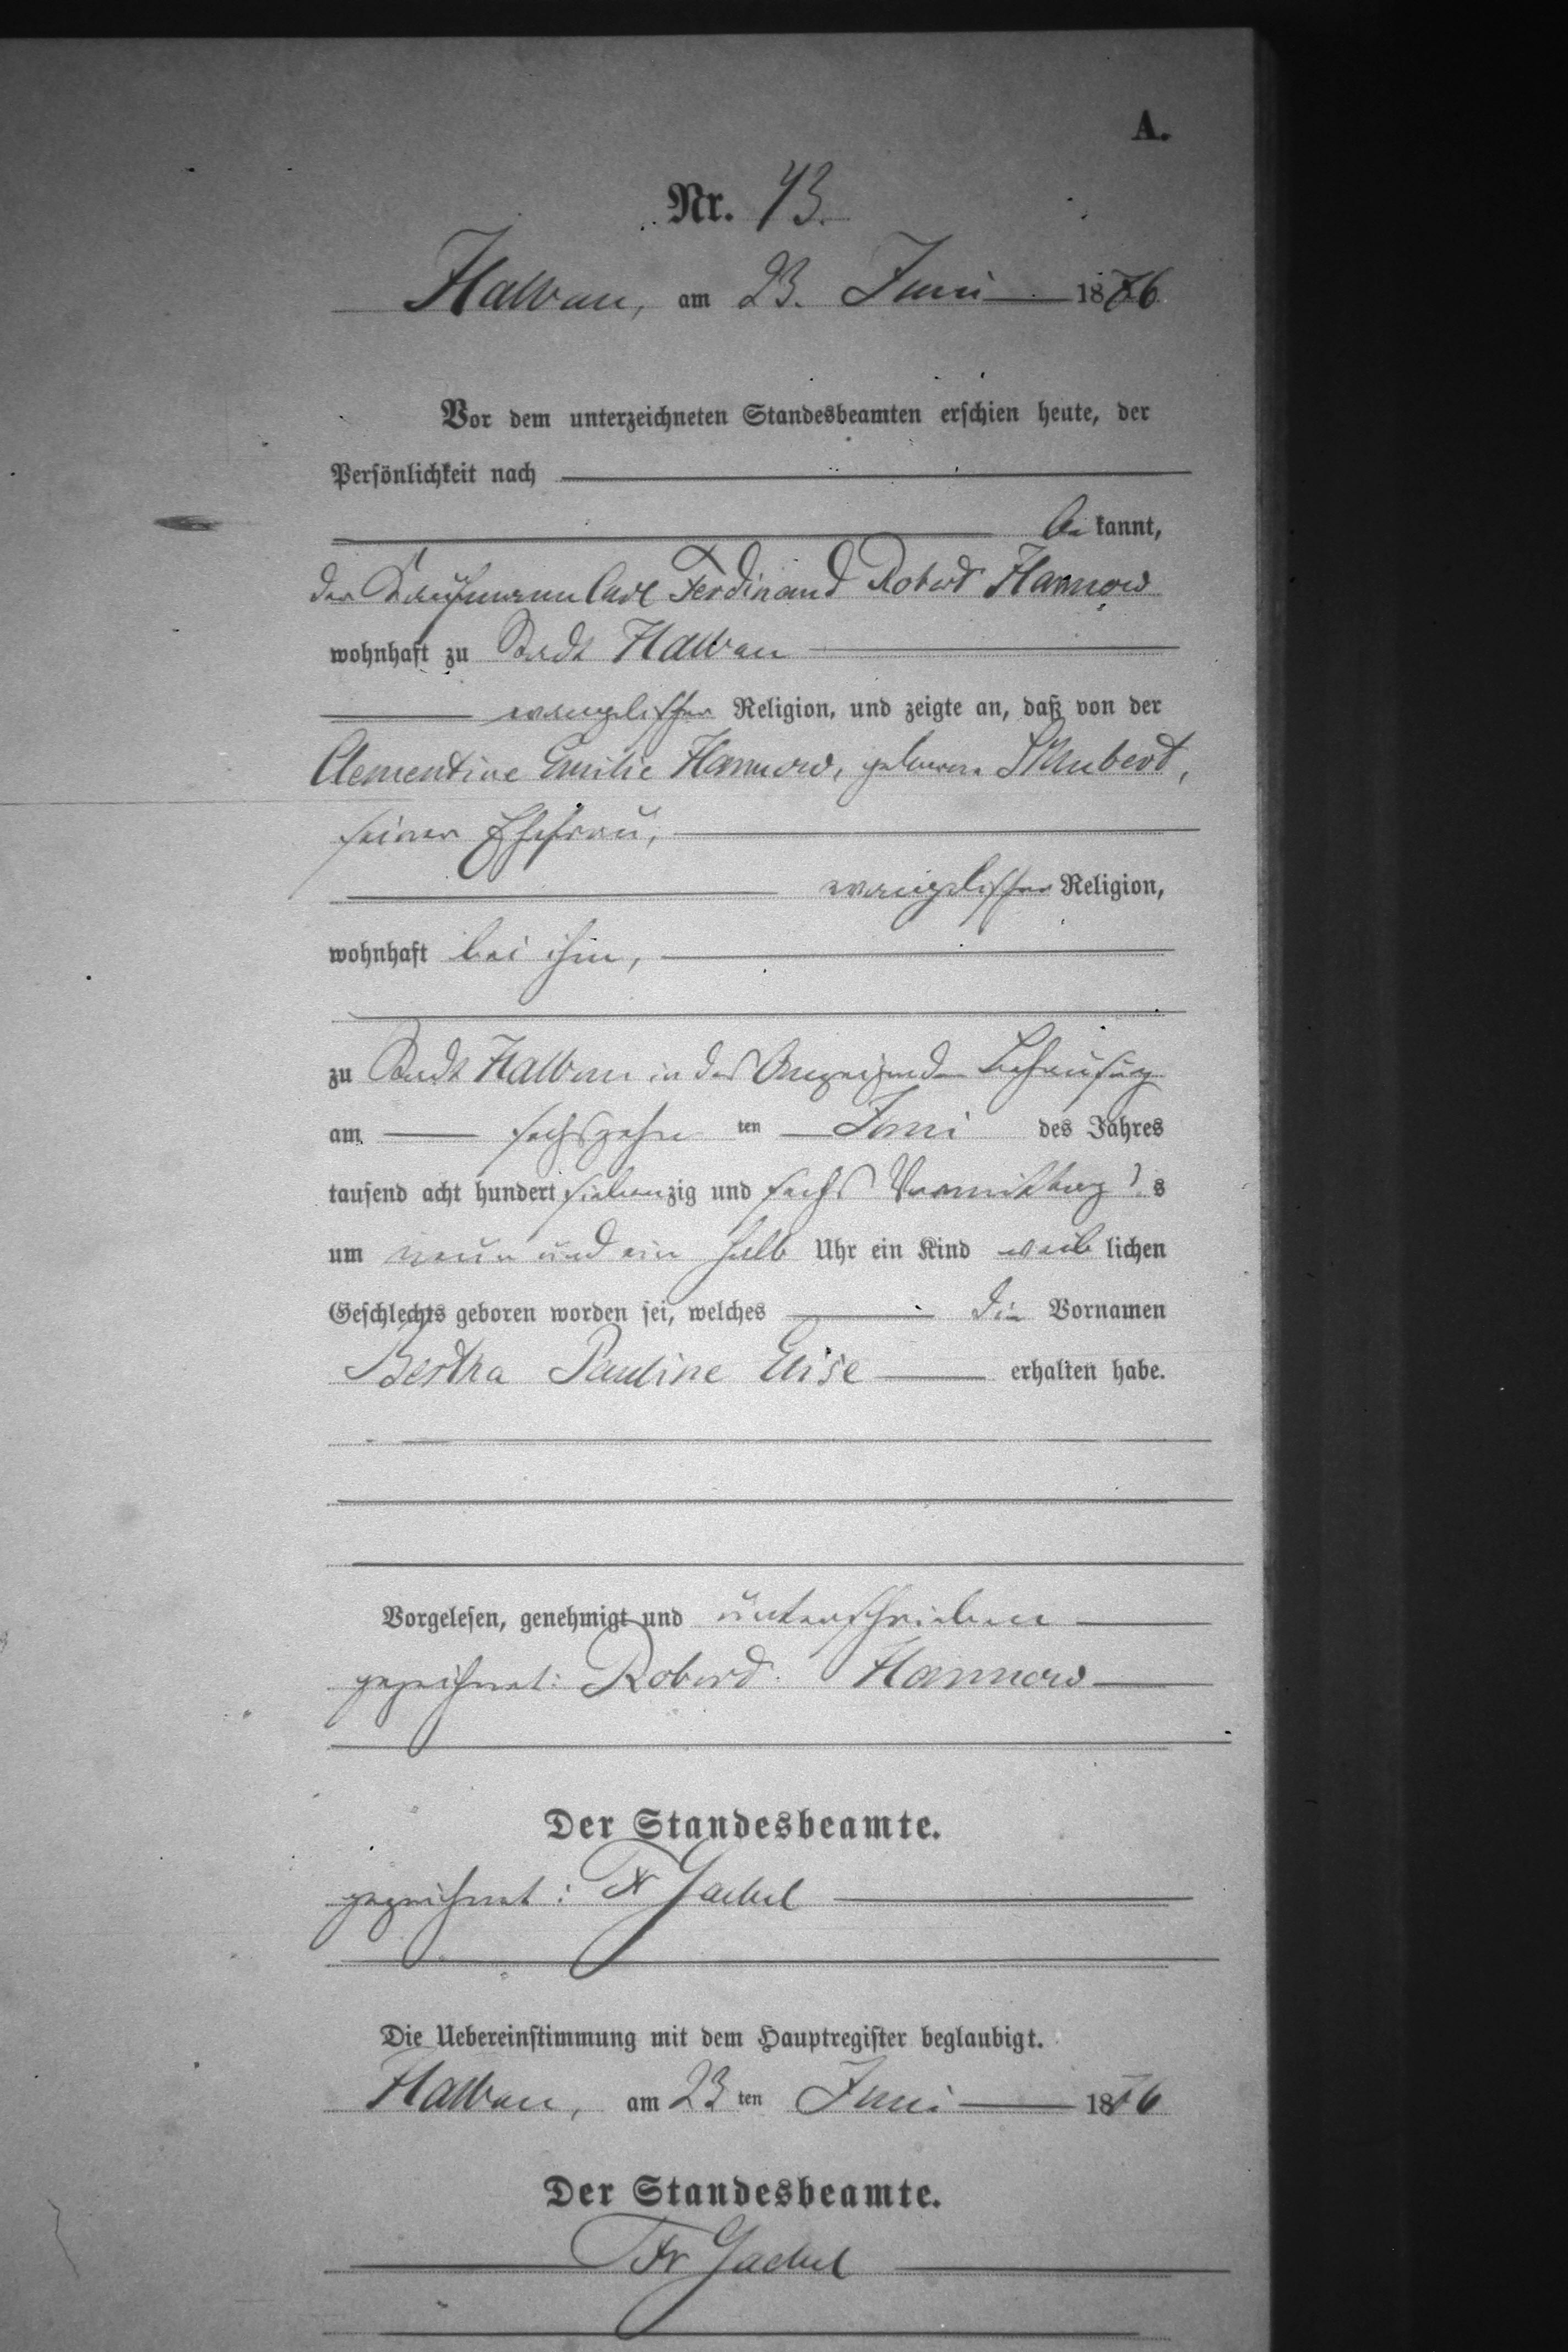 A.
Nr. 43.
Halbau, am 23. Juni 1876
Vor dem unterzeichneten Standesbeamten erschien heute, der
Persönlichkeit nach
be kannt,
der Kaufmann Carl Ferdinand Robert Hannow
wohnhaft zu Stadt Halbau
evangelischer Religion, und zeigte an, daß von der
Clementine Emilie Hannow, geborene Schubert,
seiner Ehefrau,
evangelischer Religion,
wohnhaft bei ihm,
zu Stadt Halbau in des Anzeigenden Behausung
am sechszehn ten Juni des Jahres
tausend acht hundert siebenzig und sechs Vormittag s
um neun und ein halb Uhr ein Kind weib lichen
Geschlechts geboren worden sei, welches die Vornamen
Bertha Pauline Elise erhalten habe.
Vorgelesen, genehmigt und unterschrieben
gezeichnet: Robert Hannow
Der Standesbeamte.
gezeichnet: Fr Jaekel
Die Uebereinstimmung mit dem Hauptregister beglaubigt.
Halbau, am 23 ten Juni 1876
Der Standesbeamte.
Fr Jaekel